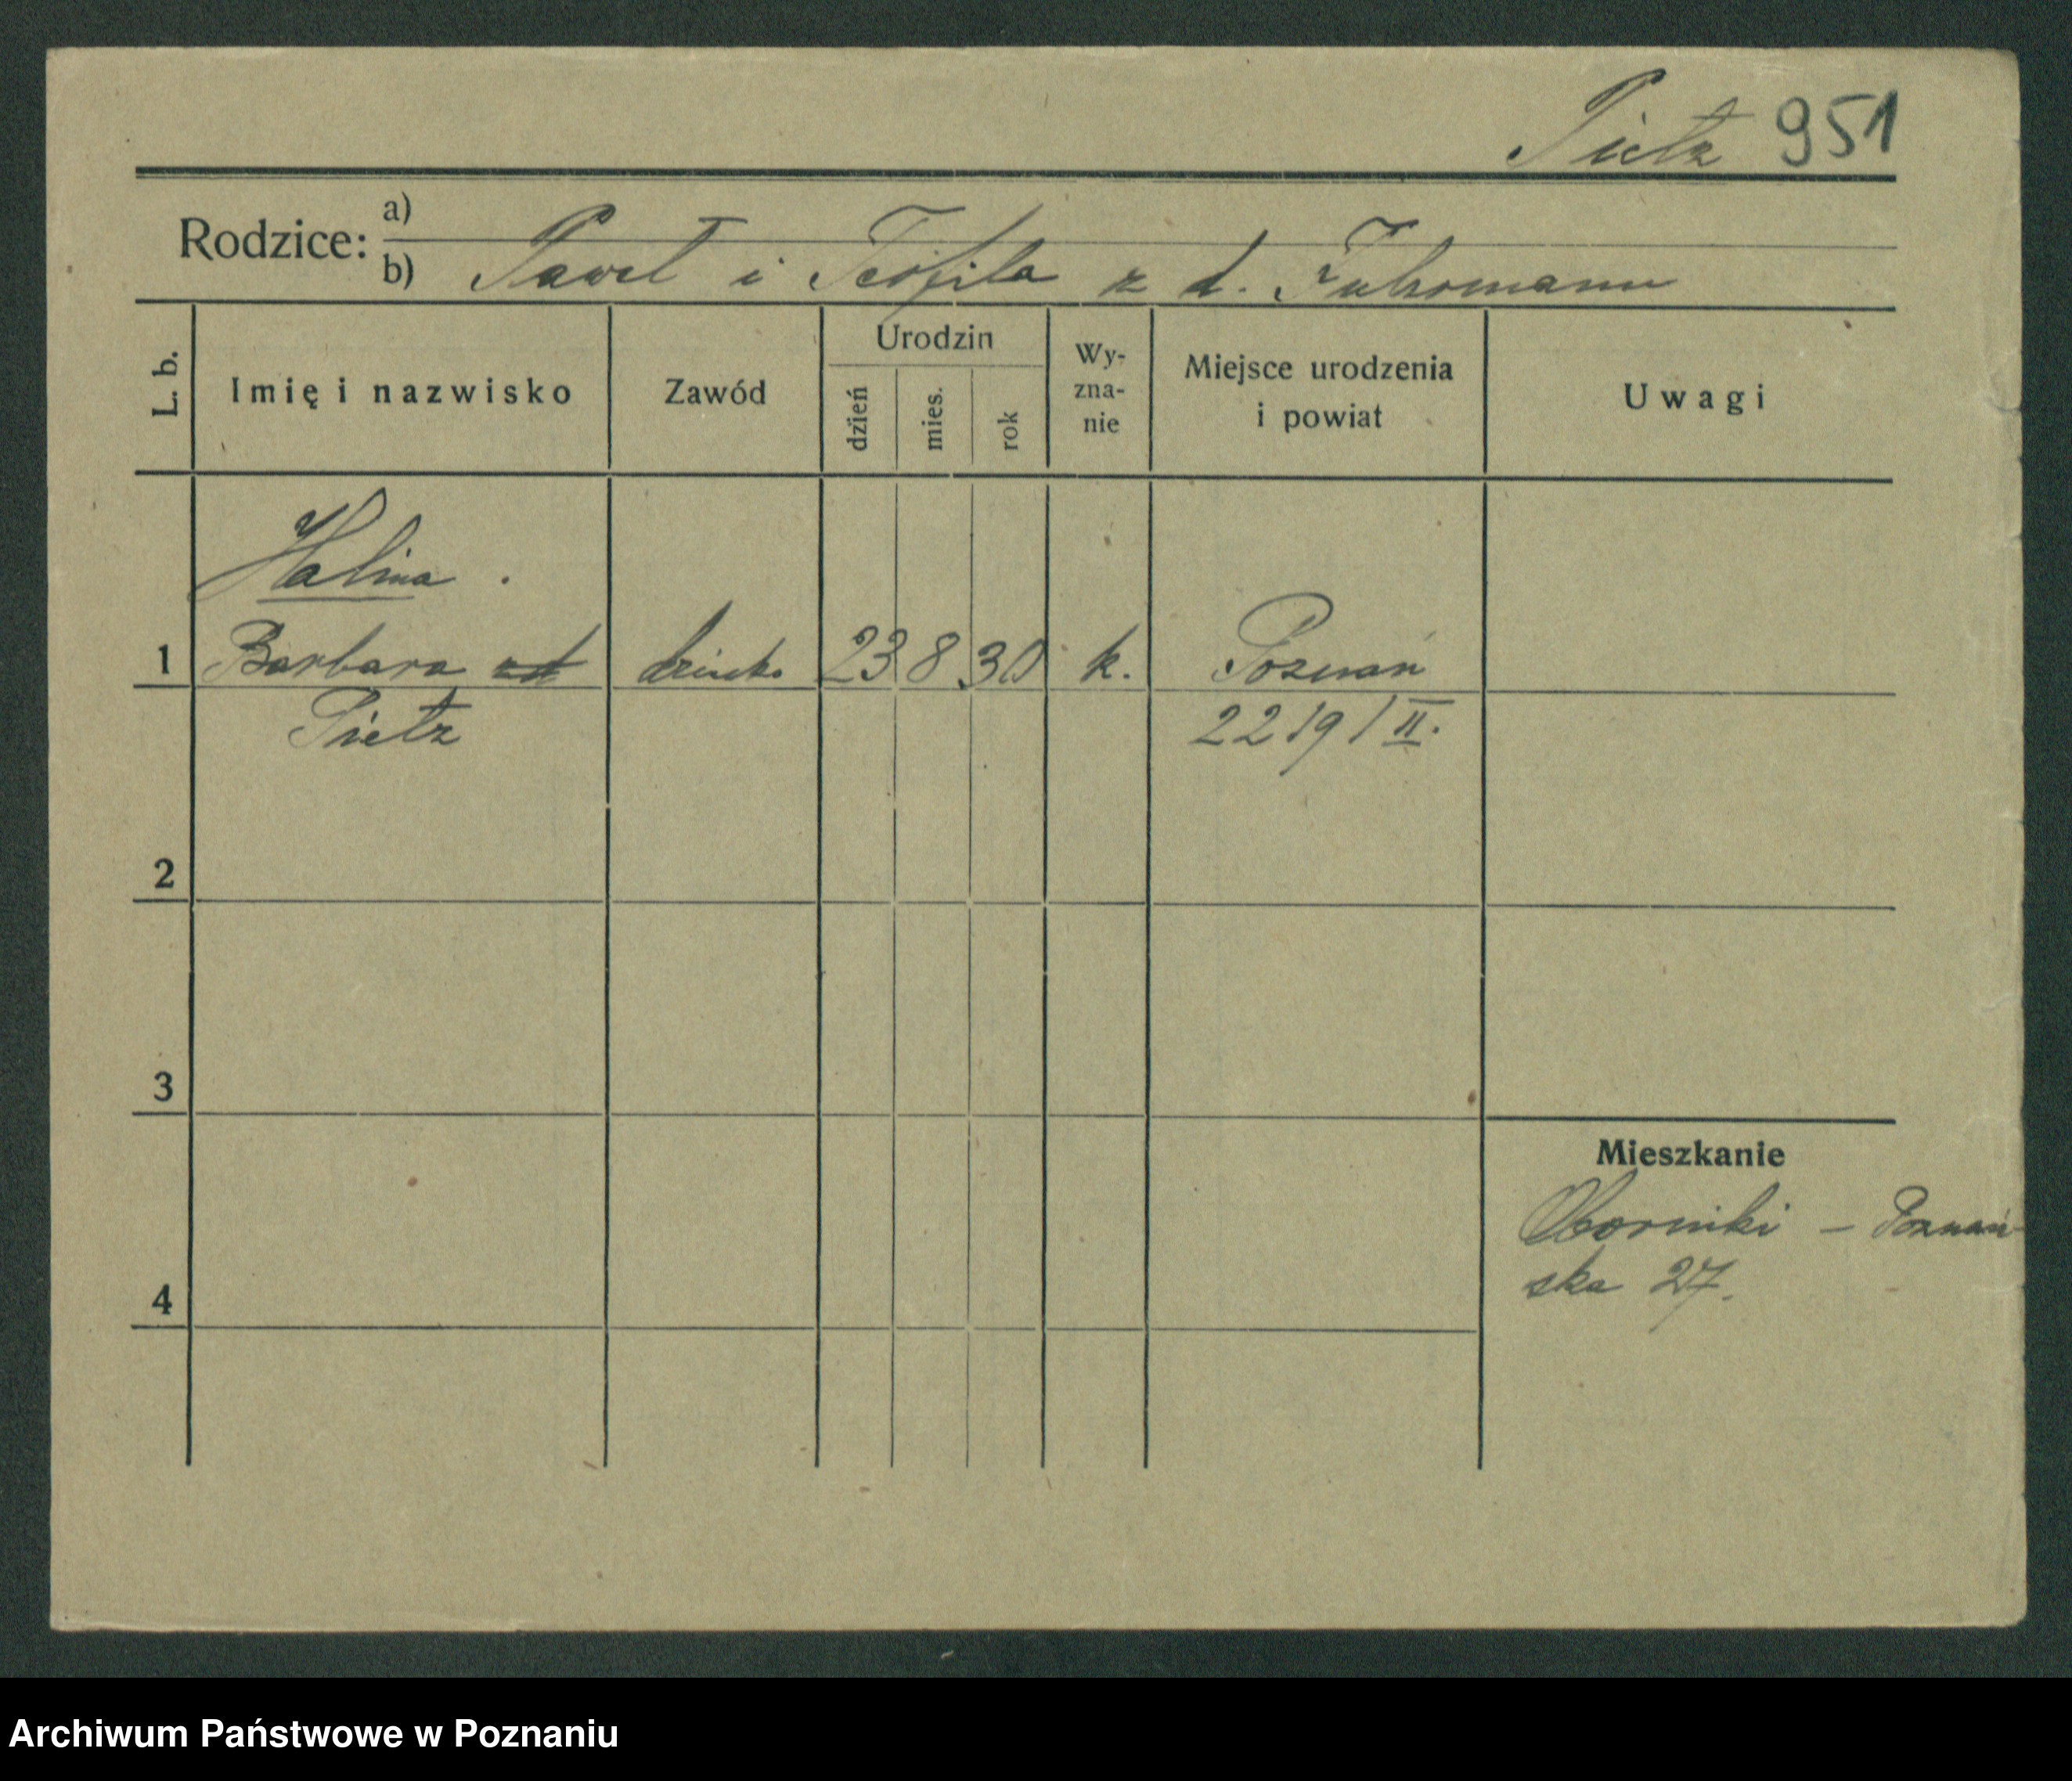 Pietz 951
Rodzice: a)
b) Paweł i Teofila z d. Fuhrmann
L. b.
Imię i nazwisko
Zawód
Urodzin
dzień
mies.
rok
Wy-
zna-
nie
Miejsce urodzenia
i powiat
Uwagi
Halina
1 Barbara dziecko 23 8 30 k. Poznań
Pietz 2219/II.
2
3
4
Mieszkanie
Oborniki – Poznań-
ska 27.
Archiwum Państwowe w Poznaniu